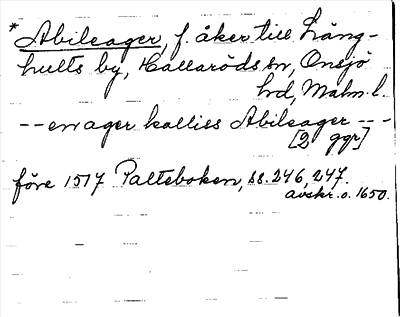 * Abileager, f. åker till Lång-
hults by, Hallaröds sn, Onsjö
hd, Malm. l.
-- en ager kalliss Abileager ---
[2 ggr]
före 1517 Palteboken, ss. 246, 247.
avskr. o. 1650.